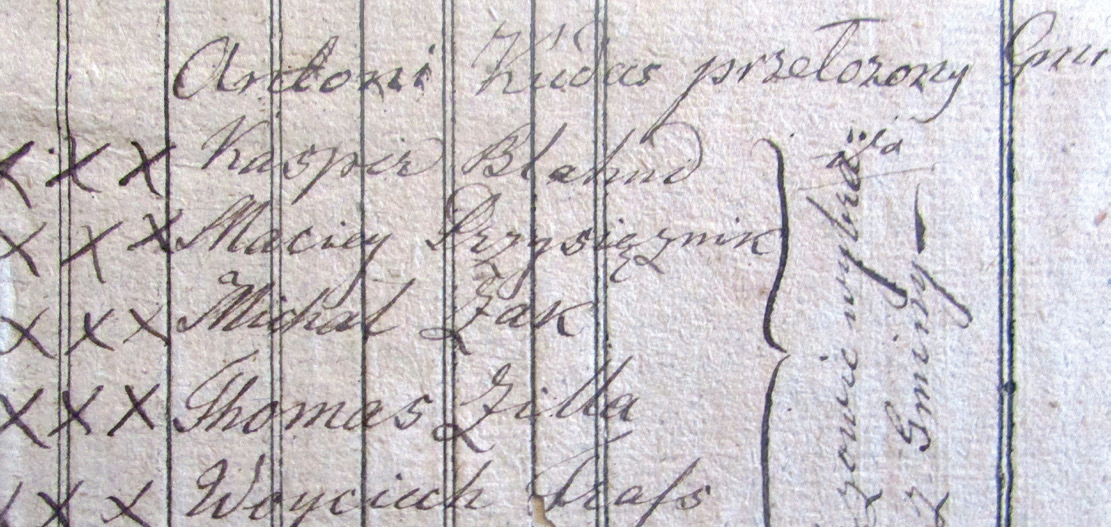 Antoni Kudas przełożony Gmi
XXX Kasper Blahud
XXX Maciey Przysięznik
XXX Michał Zak
XXX Thomas Zilla
XXX Woyciech
wybrani
z Gminy